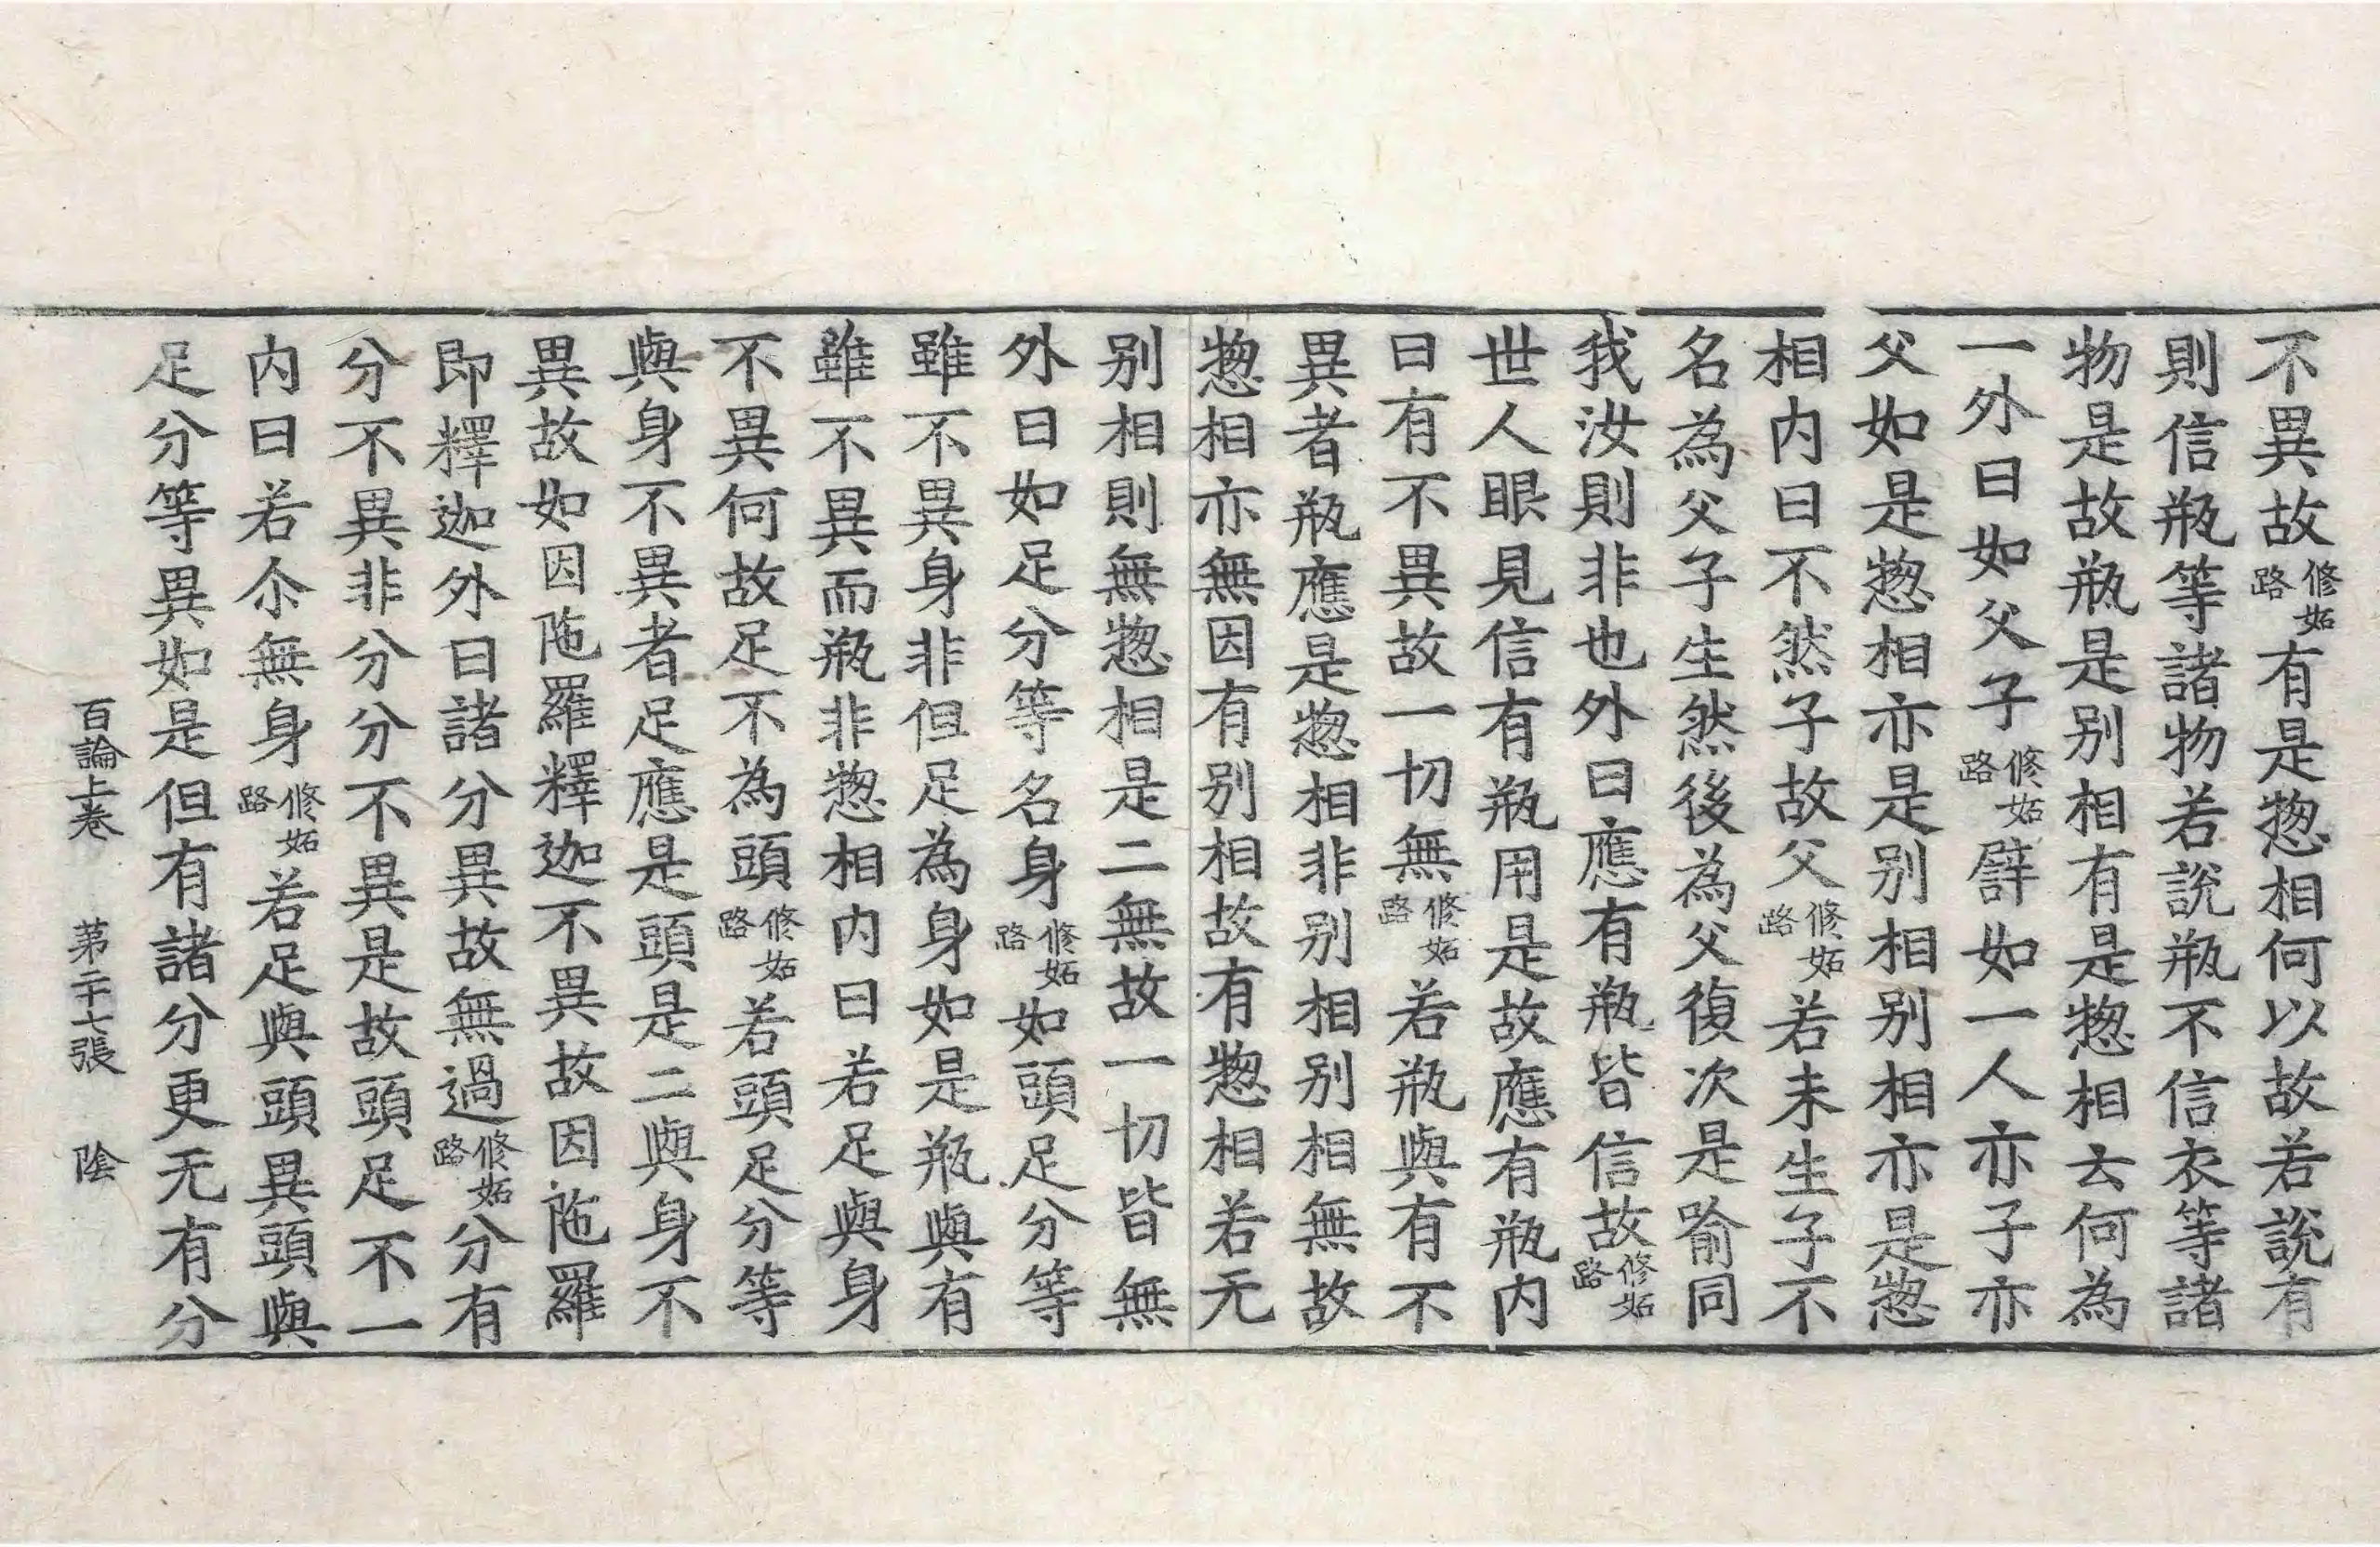 不異故修妬路有是揔相何以故若說有
則信瓶等諸物若說瓶不信衣等諸
物是故瓶是别相有是揔相云何為
一外曰如父子修妬路譬如一人亦子亦
父如是揔相亦是别相别相亦是揔
相内曰不然子故父修妬路若未生子不
名為父子生然後為父復次是喻同
我汝則非也外曰應有瓶皆信故修妬路
世人眼見信有瓶用是故應有瓶内
曰有不異故一切無修妬路若瓶與有不
異者瓶應是揔相非别相别相無故
揔相亦無因有别相故有揔相若无
别相則無揔相是二無故一切皆無
外曰如足分等名身修妬路如頭足分等
雖不異身非但足為身如是瓶與有
雖不異而瓶非揔相内曰若足與身
不異何故足不為頭修妬路若頭足分等
與身不異者足應是頭是二與身不
異故如因陁羅釋迦不異故因陁羅
即釋迦外曰諸分異故無過修妬路分有
分不異非分分不異是故頭足不一
内曰若尒無身修妬路若足與頭異頭與
足分等異如是但有諸分更无有分
百論上卷 第二十七張 陰